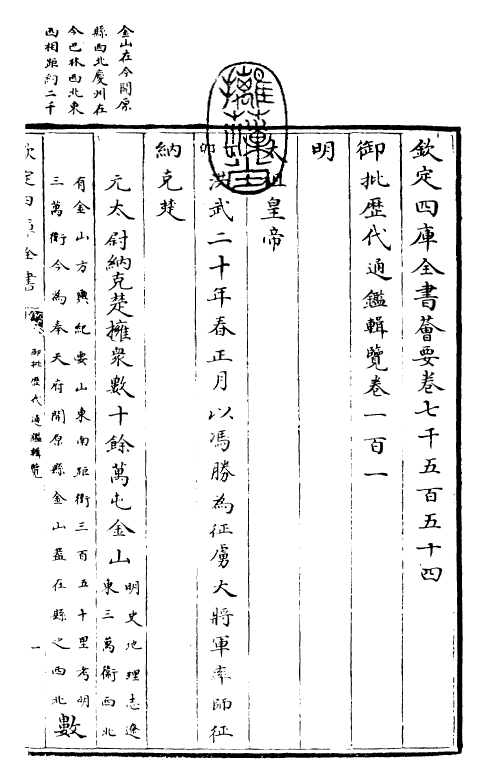 欽定四庫全書薈要卷七千五百五十四
御批歷代通鑑輯覽卷一百一
明
太祖皇帝
卯洪武二十年春正月以馮勝為征虜大將軍率師征
納克楚
元太尉納克楚擁衆數十餘萬屯金山明史地理志遼
東三萬衛西北
有金山方輿紀要山東南距衛三百五十里考明
三萬衛今為奉天府開原縣金山葢在縣之西北
數
金山在今開原
縣西北慶州在
今巴林西北東
西相距約二千
欽定四庫全書
御批歷代通鑑輯覽
一
摛藻堂